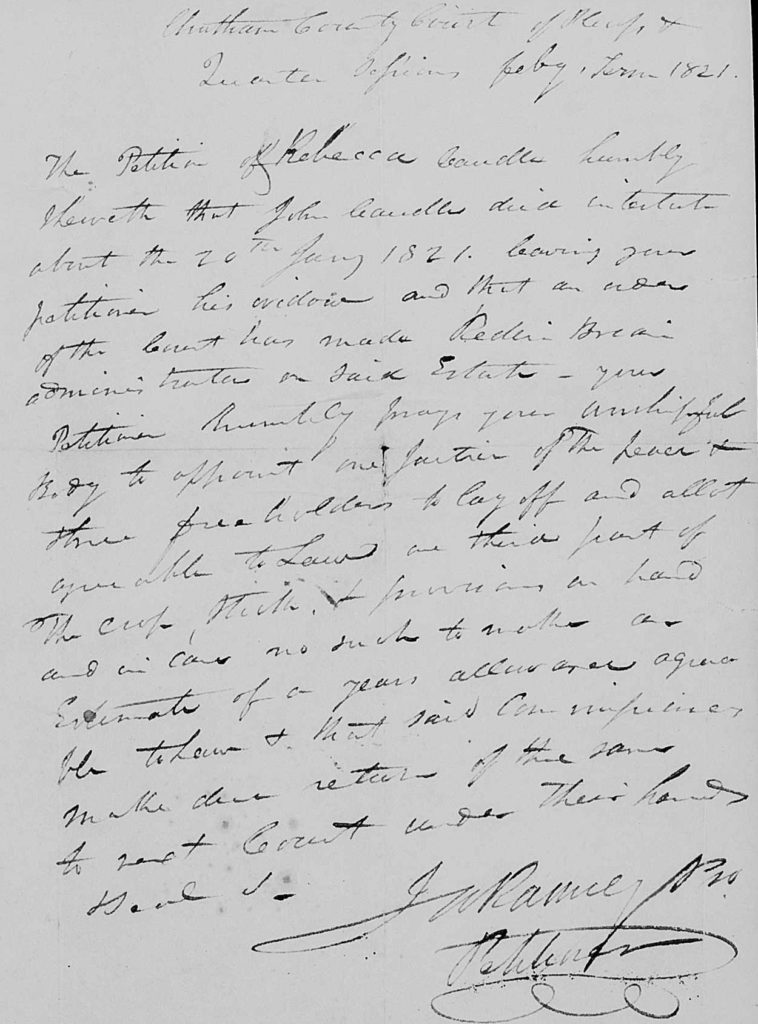 Chatham County Court of Pleas &
Quarter Sessions feby. Term 1821.
The Petition of Rebecca Caudle humbly
Sheweth that John Caudle died intestate
about the 20th Jany 1821. leaving your
petitioner his widow and that an order
of the Court has made
administrator on said Estate - your
Petitioner humbly prays your worshipful
Body to appoint one Justice of the peace &
three freeholders to lay off and allot
agreeable to Law one third part of
The crop, stock, & provisions on hand
and in case no such to make an
Estimate of a years allowance agrea
ble to Law & that said Commissioners
make due return of the same
to next Court under their hands
& Seal &
J Ramsey Pro.
Petitioner